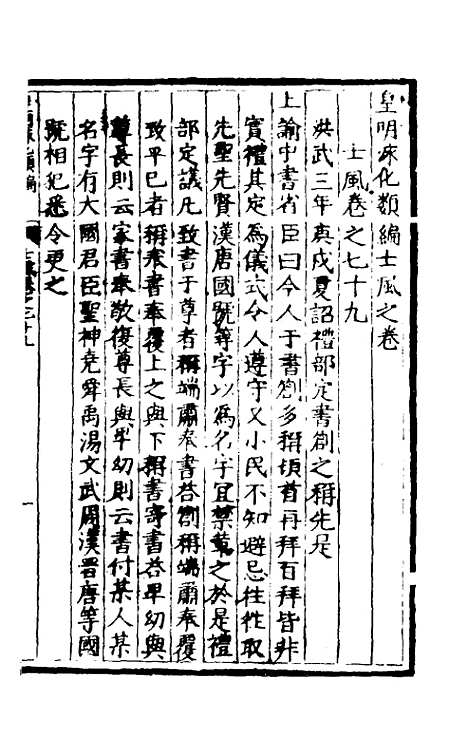 皇明泳化類編士風之卷
士風卷之七十九
洪武三年庚戌夏詔禮部定書劄之稱先是
上諭中書省臣曰今人于書劄多稱頓首再拜百拜皆非
實禮其定為儀式令人遵守又小民不知避忌往往取
先聖先賢漢唐國號等字以為名字宜禁革之於是禮
部定議凡致書于尊者稱端肅奉書答劄稱端肅奉覆
致平巳者稱奉書奉覆上之與下稱書寄書答卑幼與
尊長則云家書奉敬復尊長與卑幼則云書付某人某
名字有大國君臣聖神堯舜禹湯文武周漢晋唐等國
號相犯悉令更之
一